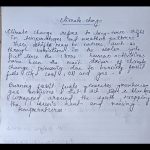 Climate change
Climate change refers to long-term shifts
in temperatures and weather patterns.
These shifts may be natural, such as
through variations in the solar cycle.
But since the 1800s, human activities
have been the main driver of climate
change, primarily due to burning fossil
fuels like coal, oil and gas.
Burning fossil fuels generates greenhouse
gas emissions that act like a blanket
wrapped around the Earth, trapping
the sun's heat and raising
temperatures.